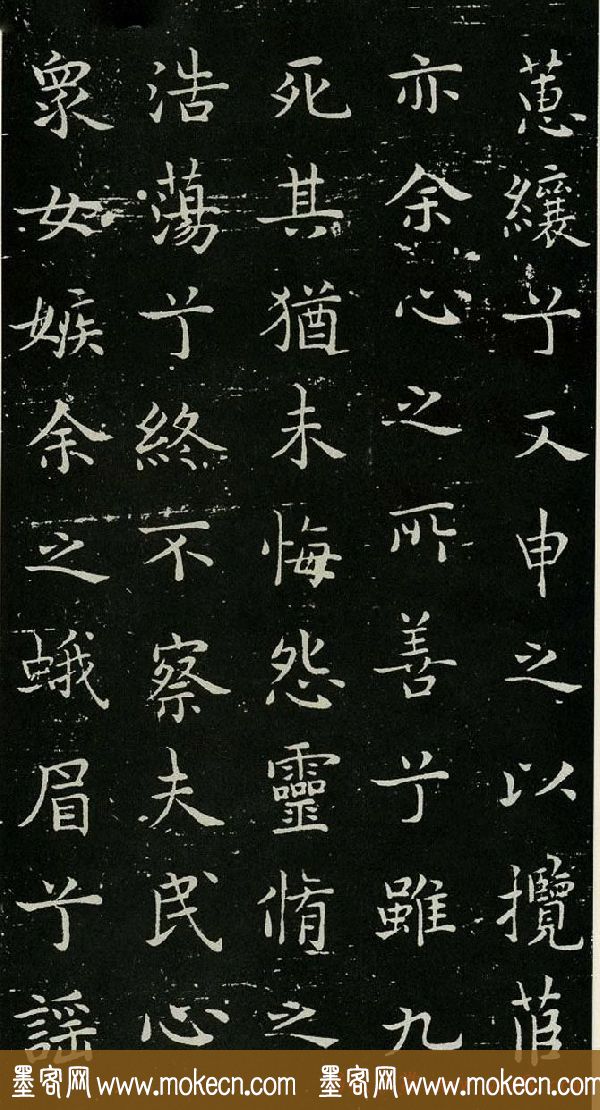 蕙纕兮又申之以攬茝
亦余心之所善兮雖九
死其猶未悔怨靈脩之
浩蕩兮終不察夫民心
衆女嫉余之蛾眉兮謠
墨客网 www.mokecn.com 墨客网 www.mokecn.com